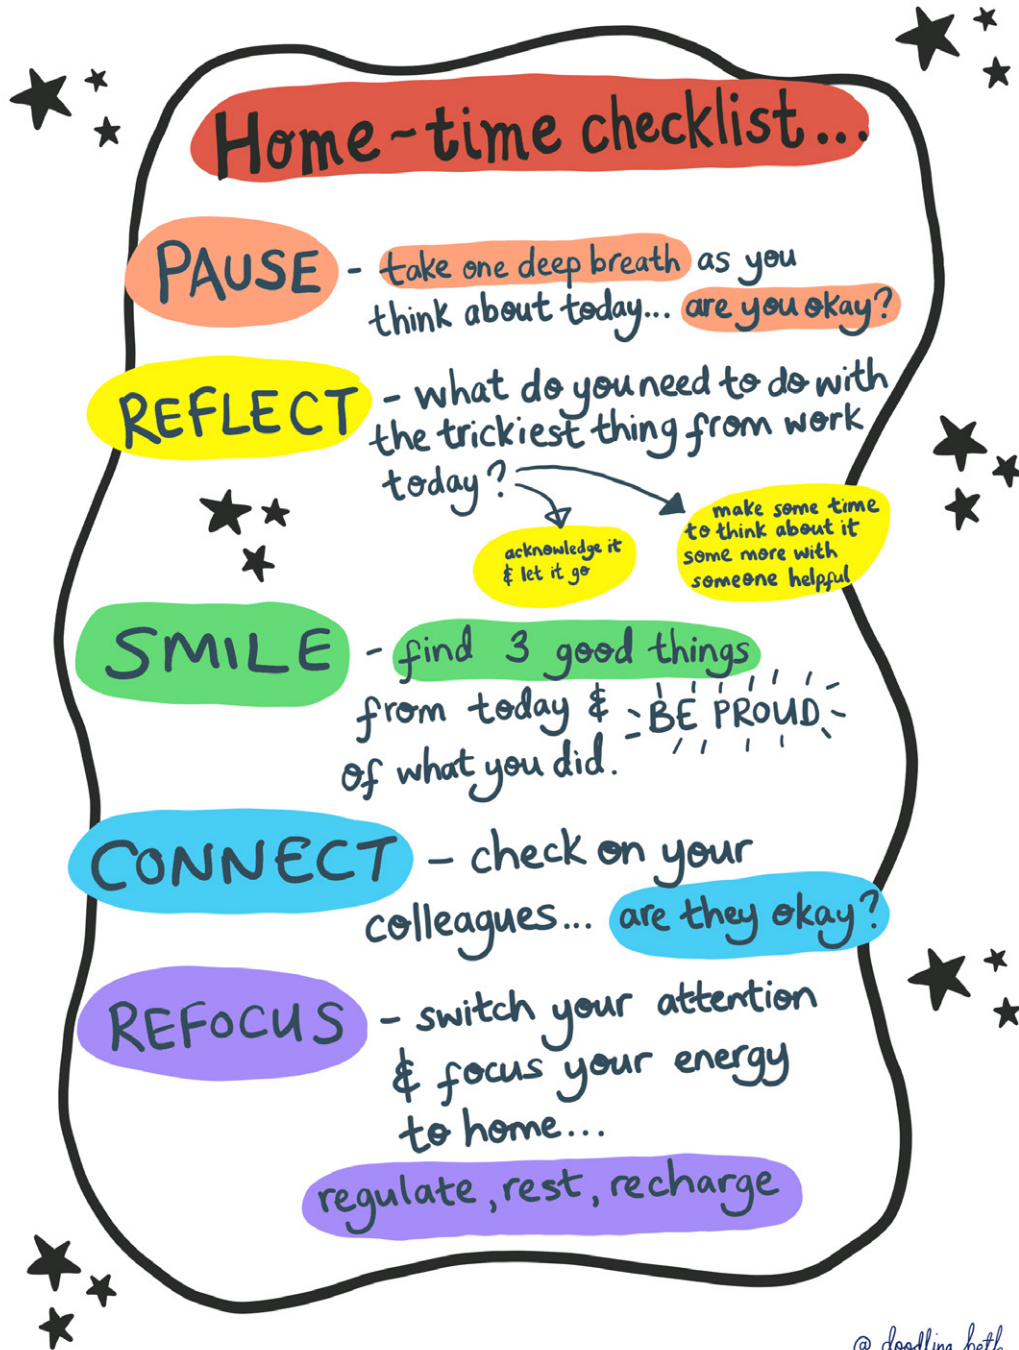 Home-time checklist...
PAUSE - take one deep breath as you
think about today... are you okay?
REFLECT - what do you need to do with
the trickiest thing from work
today?
acknowledge it
& let it go
make some time
to think about it
some more with
someone helpful
SMILE - find 3 good things
from today & BE PROUD
of what you did.
CONNECT - check on your
colleagues... are they okay?
REFOCUS - switch your attention
& focus your energy
to home...
regulate, rest, recharge
@doodling_beth